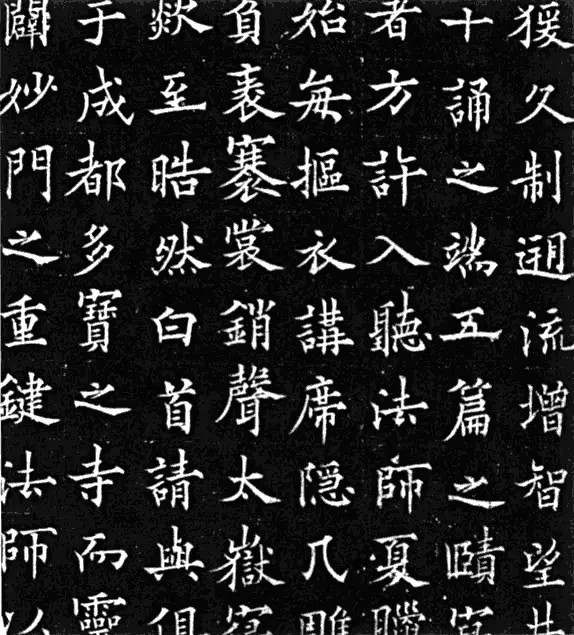 猨久制逈流增智望井
十誦之端五篇之賾寔
者方許入聽法師夏臘
始每摳衣講席隱几雕
負袠褰裳銷聲太嶽寔
歘至晧然白首請與俱
于成都多寶之寺而靈
闢妙門之重鍵法師以